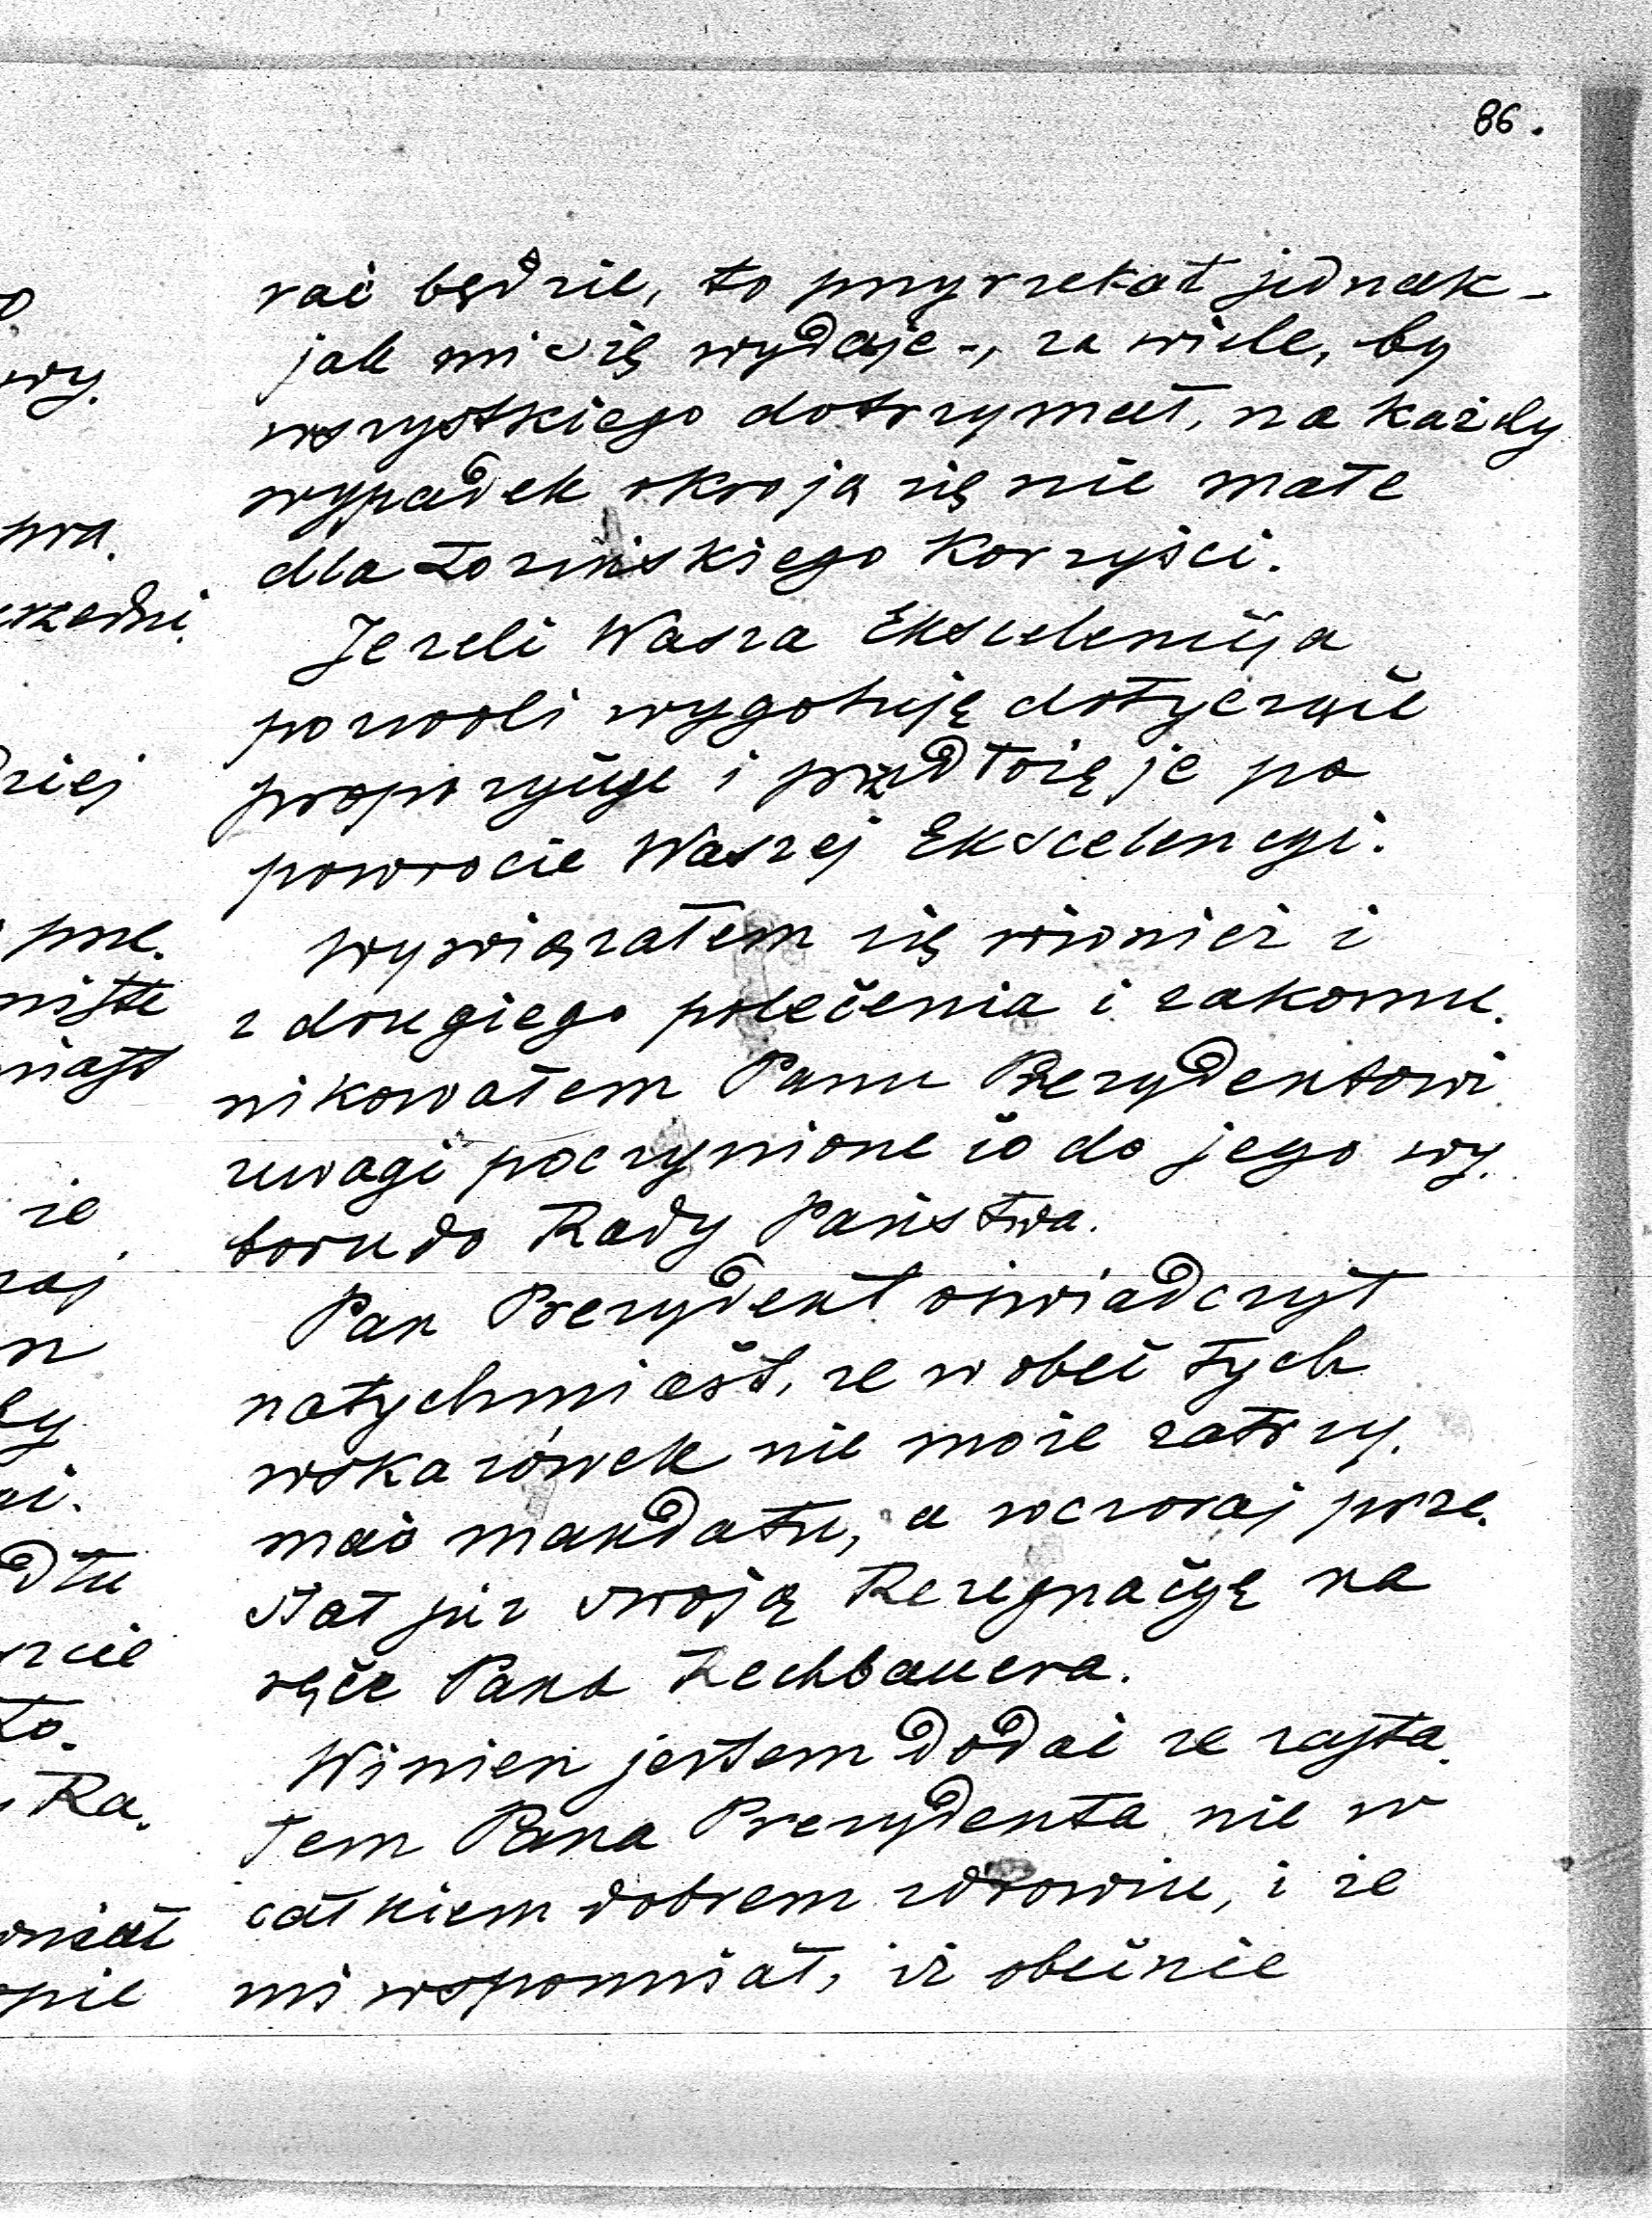 86.
rać będzie, to przyrzekał jednak -
jak mi się wydaje -, za wiele, by
wszystkiego dotrzymał, na każdy
wypadek okroją się nie małe
dla Łozińskiego korzyści.
Jezeli Wasza Ekscelencija
pozwoli wygotuję dotyczące
propozycije i przedłożę je po
powrocie Waszej Ekscelencyi.
Wywiązałem się również i
z drugiego polecenia i zakomu.
nikowałem Panu Prezydentowi
uwagi poczynione co do jego wy.
boru do Rady Państwa.
Pan Prezydent oświadczył
natychmiast, ze wobec tych
wskazówek nie może zatrzy.
mać mandatu, a wczoraj prze.
słał już swoją Rezegnacyę na
ręce Pana Rechbauera.
Winien jestem dodać ze zasta.
łem Pana Prezydenta nie w
całkiem dobrem zdrowiu, i że
mi wspomniał, iż obecnie
wy.
pra.
dziej
prze.
że
by
dtu
to.
Ra.